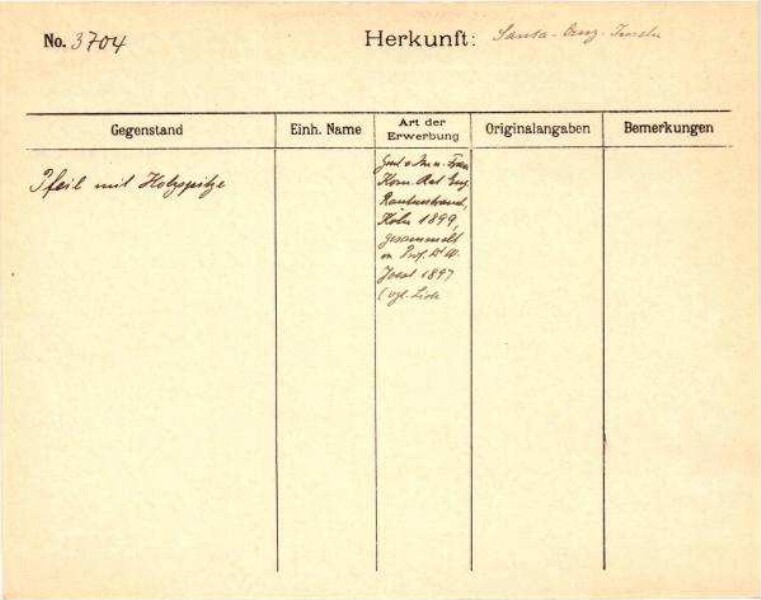 No. 3704 Herkunft: Santa-Cruz-Inseln
Gegenstand Einh. Name Art der Erwerbung Originalangaben Bemerkungen
Pfeil mit Holzspitze
Frau
Kom. Rat Eug.
Rautenstrauch,
Köln 1899,
gesammelt
Prof. Dr W.
Joest 1897
(vgl. Liste